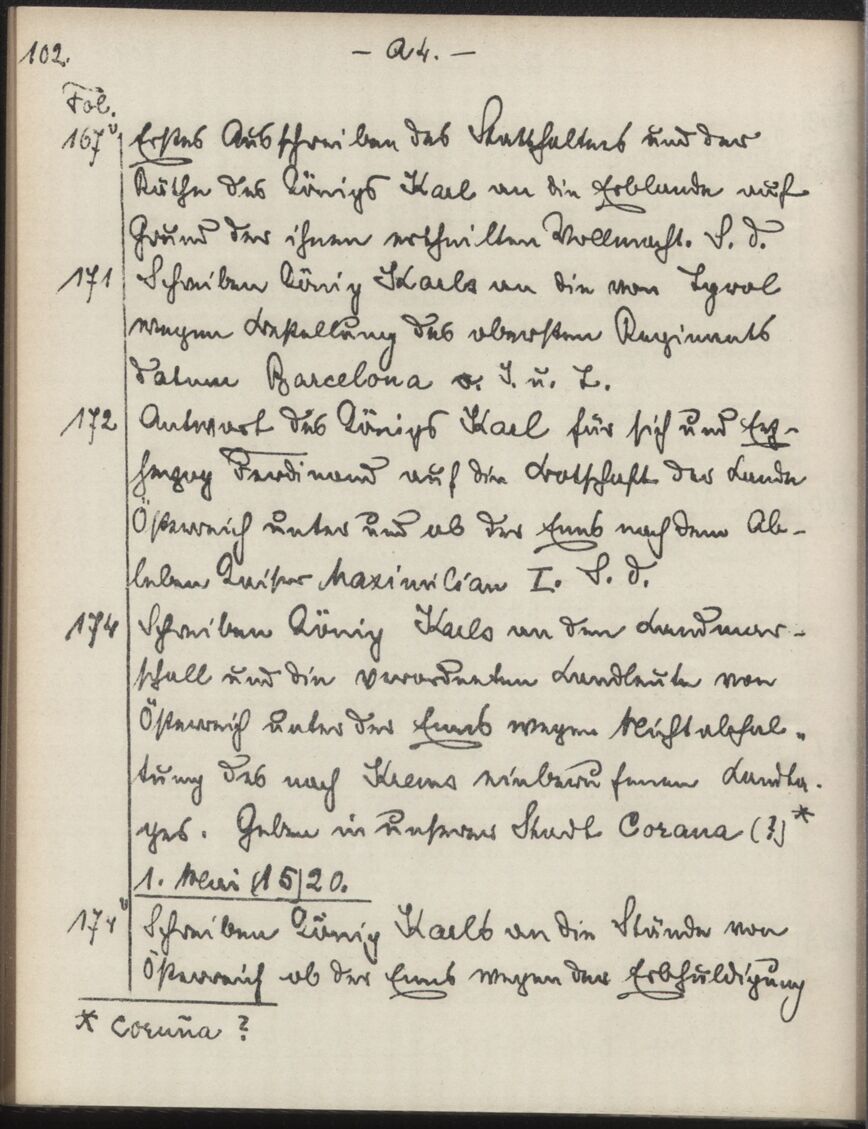 102.
– A 4. –
Fol.
167v Erstes Ausschreiben des Statthalters und der
Räthe des Königs Karl an die Erblande auf
Grund der ihnen ertheilten Vollmacht. S. d.
171 Schreiben König Karls an die von Tyrol
wegen Bestellung des obersten Regiments
datum Barcelona o. J. u. T.
172 Antwort des Königs Karl für sich und Erz-
herzog Ferdinand auf die Botschaft der Lande
Österreich unter und ob der Enns nach dem Ab-
leben Kaiser Maximilian I. S. d.
174 Schreiben König Karls an den Landmar-
schall und die verordneten Landleute von
Österreich unter der Enns wegen Nichtabhal-
tung des nach Krems einberufenen Landta-
ges. Geben in unserer Stadt Corana (?) *
1. Mai (15)20.
174v Schreiben König Karls an die Stände von
Österreich ob der Enns wegen der Erbhuldigung
* Coruña ?